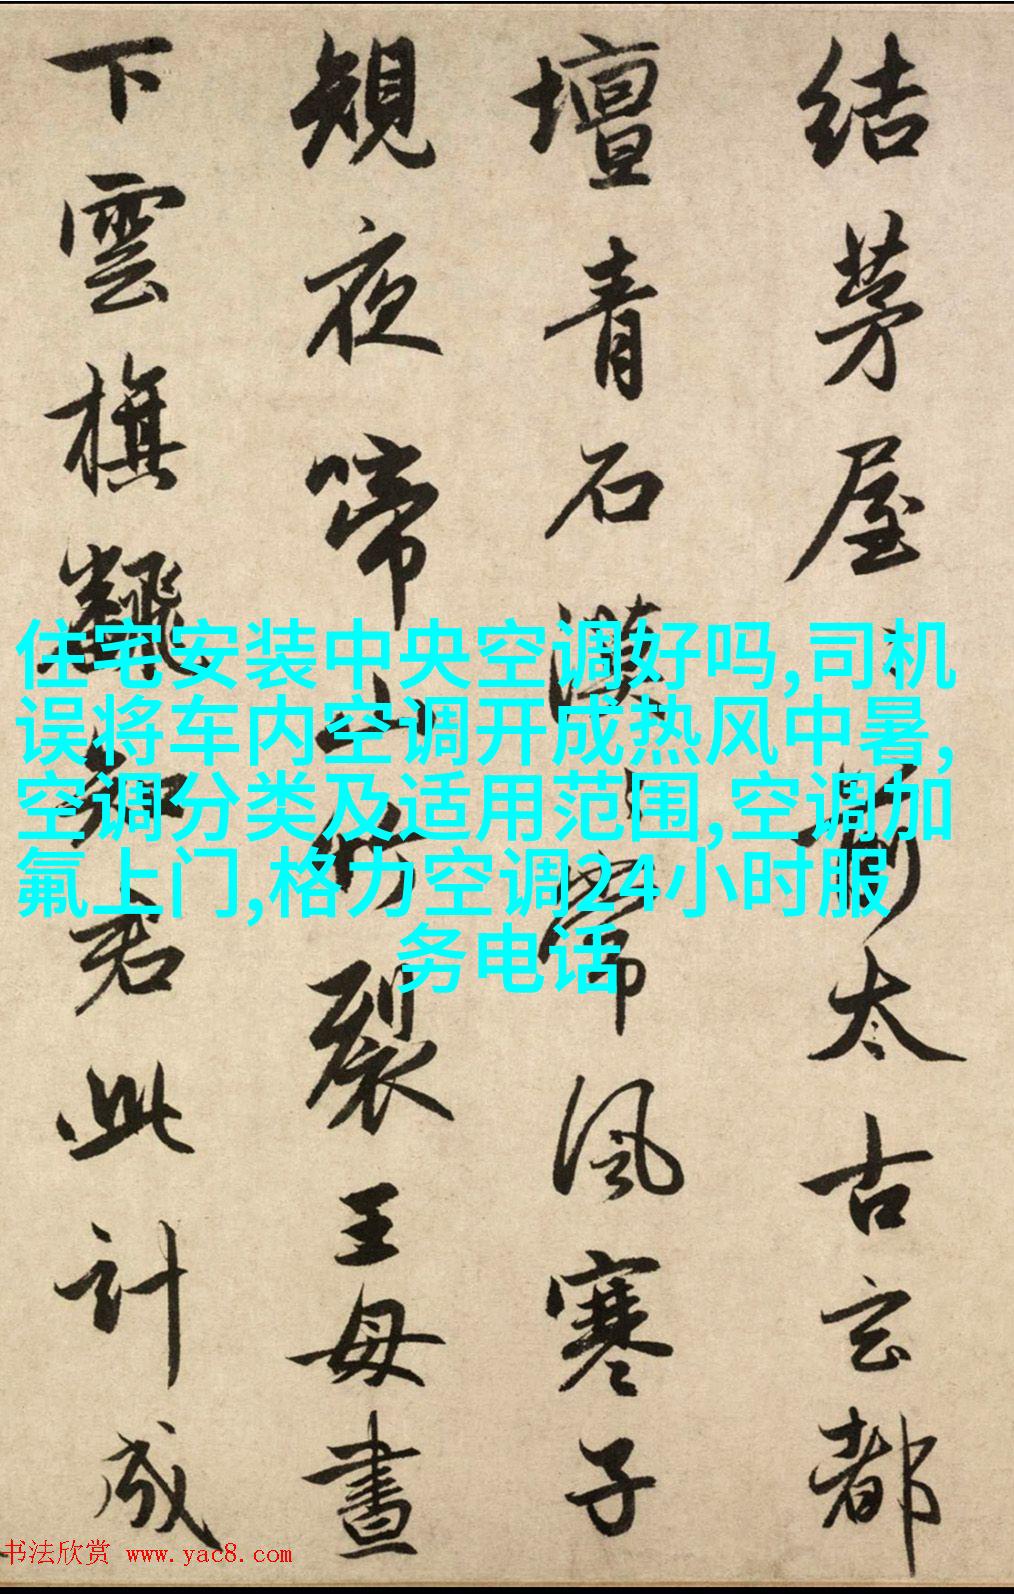 結茅屋〻前太古玄都
壇青石漠〻常風寒子
規夜啼山竹裂王母晝
下雲旗飜知君此計成
住宅安装中央空调好吗,司机
误将车内空调开成热风中暑,
空调分类及适用范围,空调加
氟上门,格力空调24小时服
务电话
书法欣赏 www.yac8.com